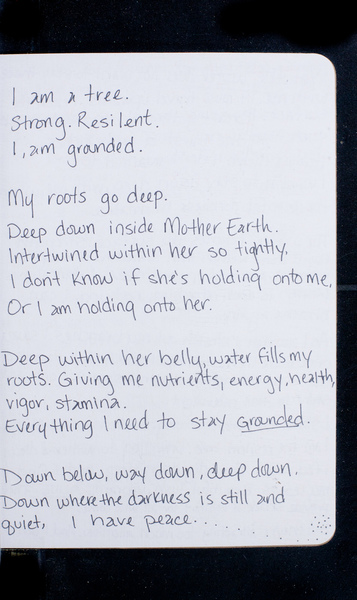 I am a tree.
Strong. Resilent.
I, am grounded.
My roots go deep.
Deep down inside Mother Earth.
Intertwined within her so tightly,
I don't know if she's holding onto me,
Or I am holding onto her.
Deep within her belly, water fills my
roots. Giving me nutrients, energy, health,
vigor, stamina.
Everything I need to stay grounded.
Down below, way down, deep down.
Down where the darkness is still and
quiet, I have peace.....